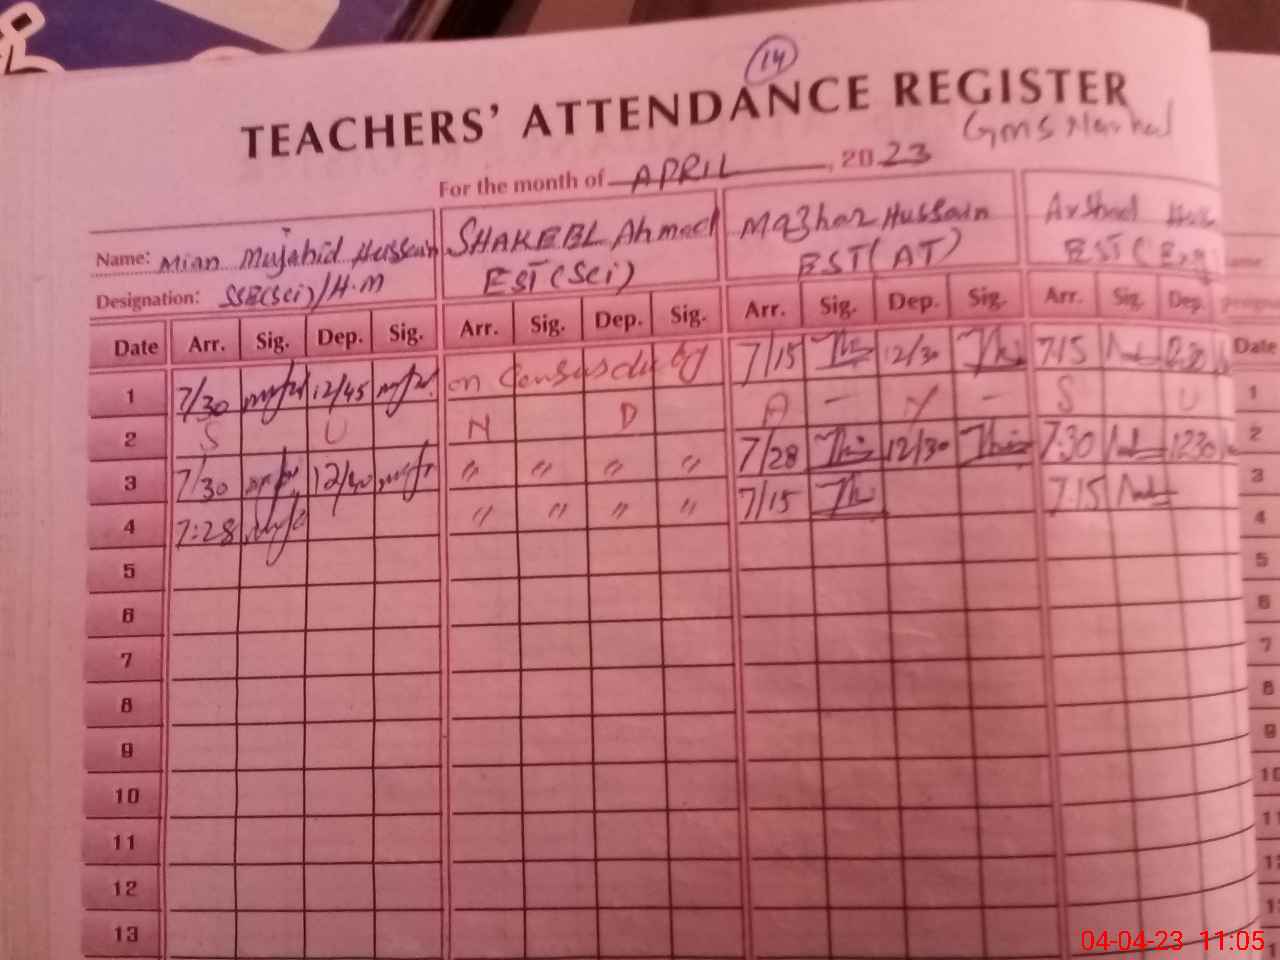 14
TEACHERS' ATTENDANCE REGISTER
Gms
For the month of APRIL, 2023
Name: Mian Mujahid Hussain SHAKEEL Ahmed Mazhar Hussain Arshad
Designation: SSE(Sci)/H.M EST(Sci) EST(AT) EST(Eng
Date Arr. Sig. Dep. Sig. Arr. Sig. Dep. Sig. Arr. Sig. Dep. Sig. Arr. Sig. Dep. Date
1 7/30 12/45 on Census duty 7/15 12/30 7:15 1
2 S U N D A — Y — S U 2
3 7/30 12/30 " " " " 7/28 12/30 7:30 1230 3
4 7:28 " " " " 7/15 7:15 4
5 5
6 6
7 7
8 8
9 9
10 10
11 11
12 12
13
04-04-23 11:05